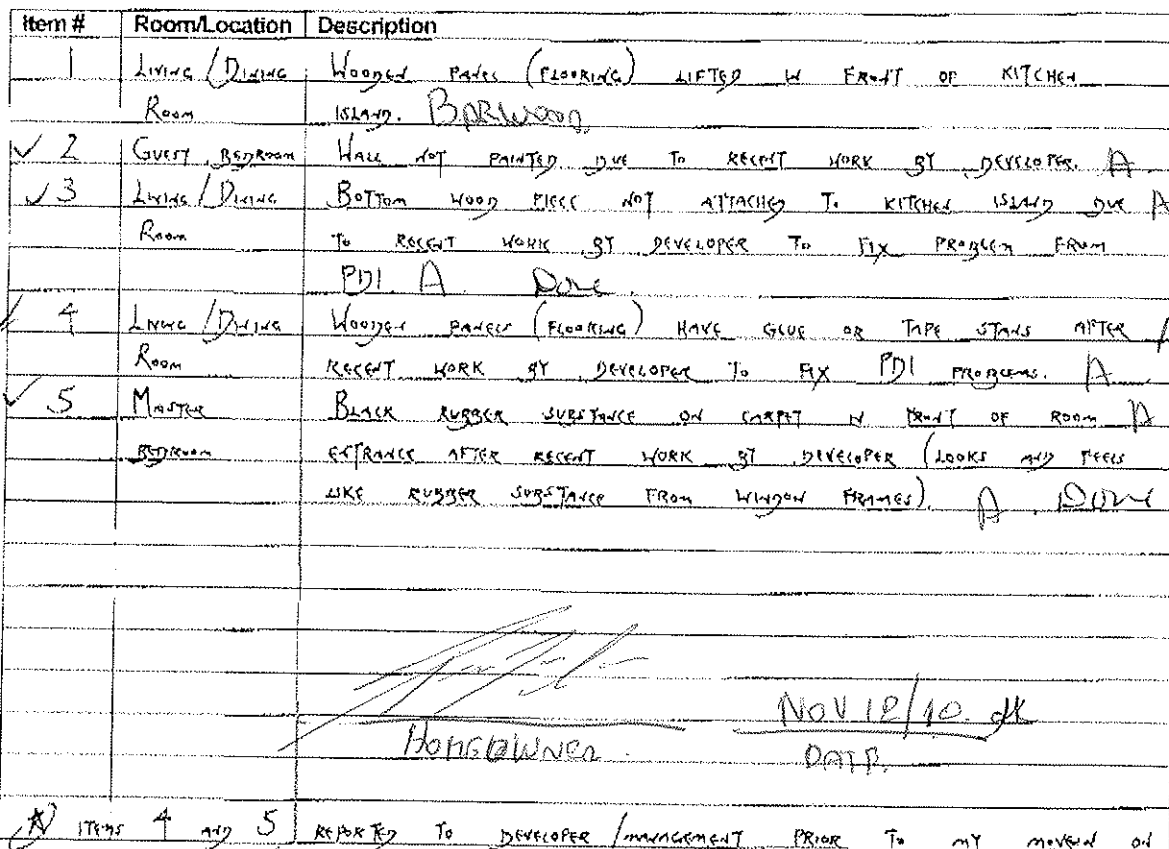 Item # Room/Location Description
1 LIVING / DINING WOODEN PANEL (FLOORING) LIFTED IN FRONT OF KITCHEN
ROOM ISLAND. BARWOOD
✓ 2 GUEST BEDROOM WALL NOT PAINTED DUE TO RECENT WORK BY DEVELOPER. A.
✓ 3 LIVING / DINING BOTTOM WOOD PIECE NOT ATTACHED TO KITCHEN ISLAND DUE A
ROOM TO RECENT WORK BY DEVELOPER TO FIX PROBLEM FROM
PDI. A Done.
✓ 4 LIVING / DINING WOODEN PANELS (FLOORING) HAVE GLUE OR TAPE STAINS AFTER
ROOM RECENT WORK BY DEVELOPER TO FIX PDI PROBLEMS. A
✓ 5 MASTER BLACK RUBBER SUBSTANCE ON CARPET IN FRONT OF ROOM A
BEDROOM ENTRANCE AFTER RECENT WORK BY DEVELOPER (LOOKS AND FEELS
LIKE RUBBER SUBSTANCE FROM WINDOW FRAMES). A. Done
NOV 12/10.
HOMEOWNER. DATE.
ITEMS 4 AND 5 REPORTED TO DEVELOPER / MANAGEMENT PRIOR TO MY MOVEIN ON